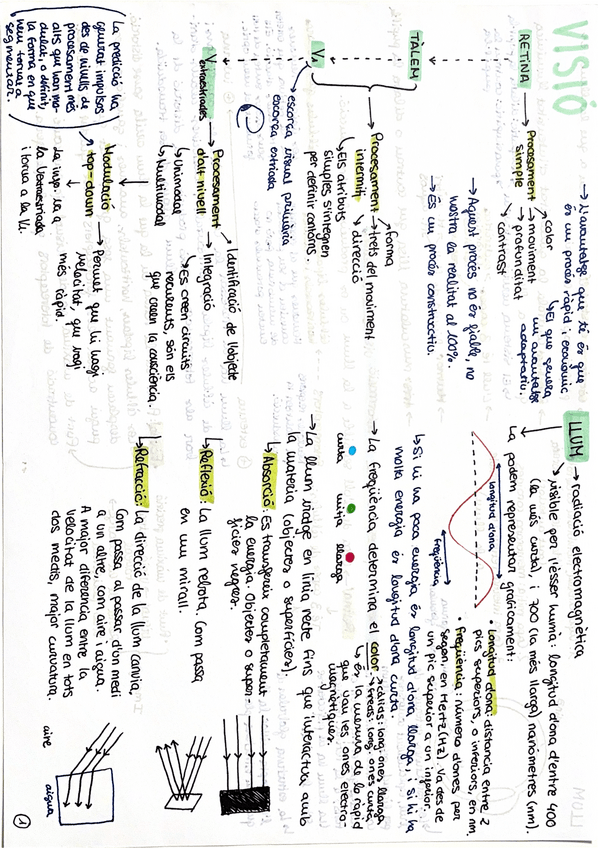 VISIÓ
RETINA
TÀLEM
V₁
V extraestriades
→ Processament simple
color
moviment
profunditat
contrast
→ L'avantatge que té és que
és un procés ràpid i econòmic
↳ El que genera
un avantatge
adaptatiu.
→ Aquest procés no és fiable, no
mostra la realitat al 100%.
→ És un procés constructiu.
→ Processament
intermig
forma
trets del moviment
direcció
↳ Els atributs
simples s'integren
per definir contorns.
escorça visual primària
escorça estriada
→ Processament
d'alt nivell
Identificació de l'objecte
Integració
↳ Es creen circuits
recurrents, són els
que creen la consciència.
↳ Unimodal
↳ Multimodal
Modulació
top-down
→ Permet que hi hagi
velocitat, que vagi
més ràpid.
La inf. va a
la V extraestriada
i torna a la V₁.
La predicció ha
generat impulsos
des de nivells de
processament més
alts que han mo-
dulat, i definit,
la forma en que
hem tornat a
segmentar.
LLUM → radiació electromagnètica
visible per l'ésser humà: longitud d'ona d'entre 400
(la més curta), i 700 (la més llarga) nanòmetres (nm).
La podem representar gràficament:
longitud d'ona
freqüència
• Longitud d'ona: distancia entre 2
pics superiors, o inferiors, en nm.
• Freqüència: número d'ones per
segon, en Hertz (Hz). Va des de
un pic superior a un inferior.
↳ Si hi ha poca energia és longitud d'ona llarga, i si hi ha
molta energia és longitud d'ona curta.
→ La freqüència determina el color
↳ àrees: long. ones curta
↳ és la mesura de lo ràpid
que van les ones electro-
magnètiques.
curta mitja llarga
→ La llum viatge en línia recte fins que interactua amb
la matèria (objectes o superfícies).
↳ Absorció: es transfereix completament
la energia. Objectes o super-
fícies negres.
↳ Reflexió: La llum rebota. Com passa
en un mirall.
↳ Refracció: La direcció de la llum canvia.
Com passa al passar d'un medi
a un altre, com aire i aigua.
A major diferència entre la
velocitat de la llum en tots
dos medis, major curvatura.
aire
aigua
1